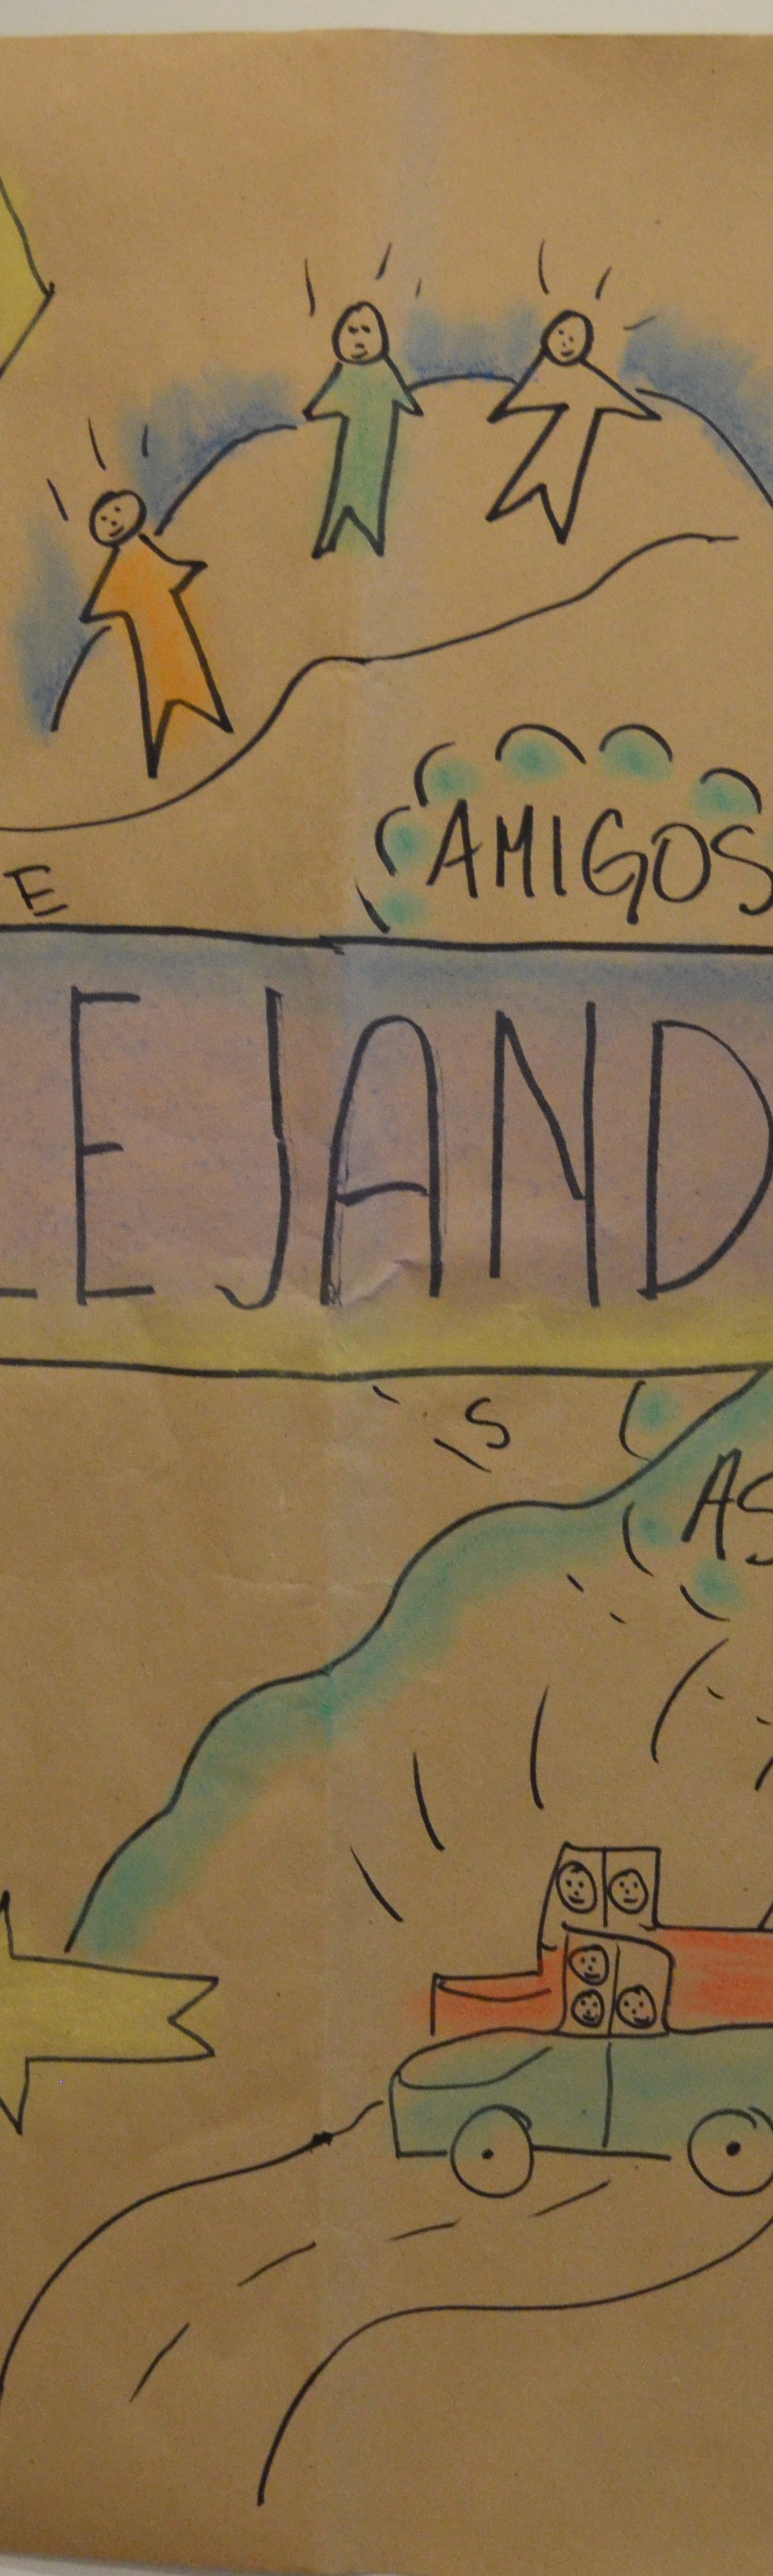 E
AMIGOS
LEJAND
S
AS